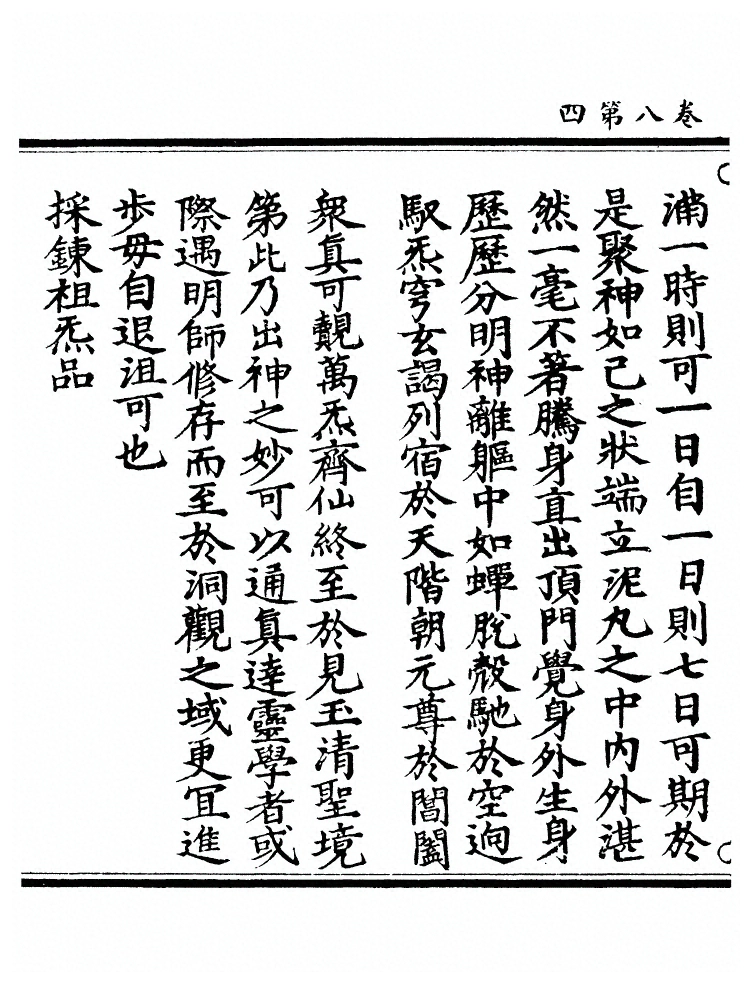 卷八第四
滿一時則可一日自一日則七日可期於
是聚神如己之狀端立泥丸之中內外湛
然一毫不著騰身直出頂門覺身外生身
歷歷分明神離軀中如蟬脫殼馳於空迥
馭炁穹玄謁列宿於天階朝元尊於閶闔
眾真可覿萬炁齊仙終至於見玉清聖境
第此乃出神之妙可以通真達靈學者或
際遇明師修存而至於洞觀之域更冝進
步毋自退沮可也
採鍊祖炁品